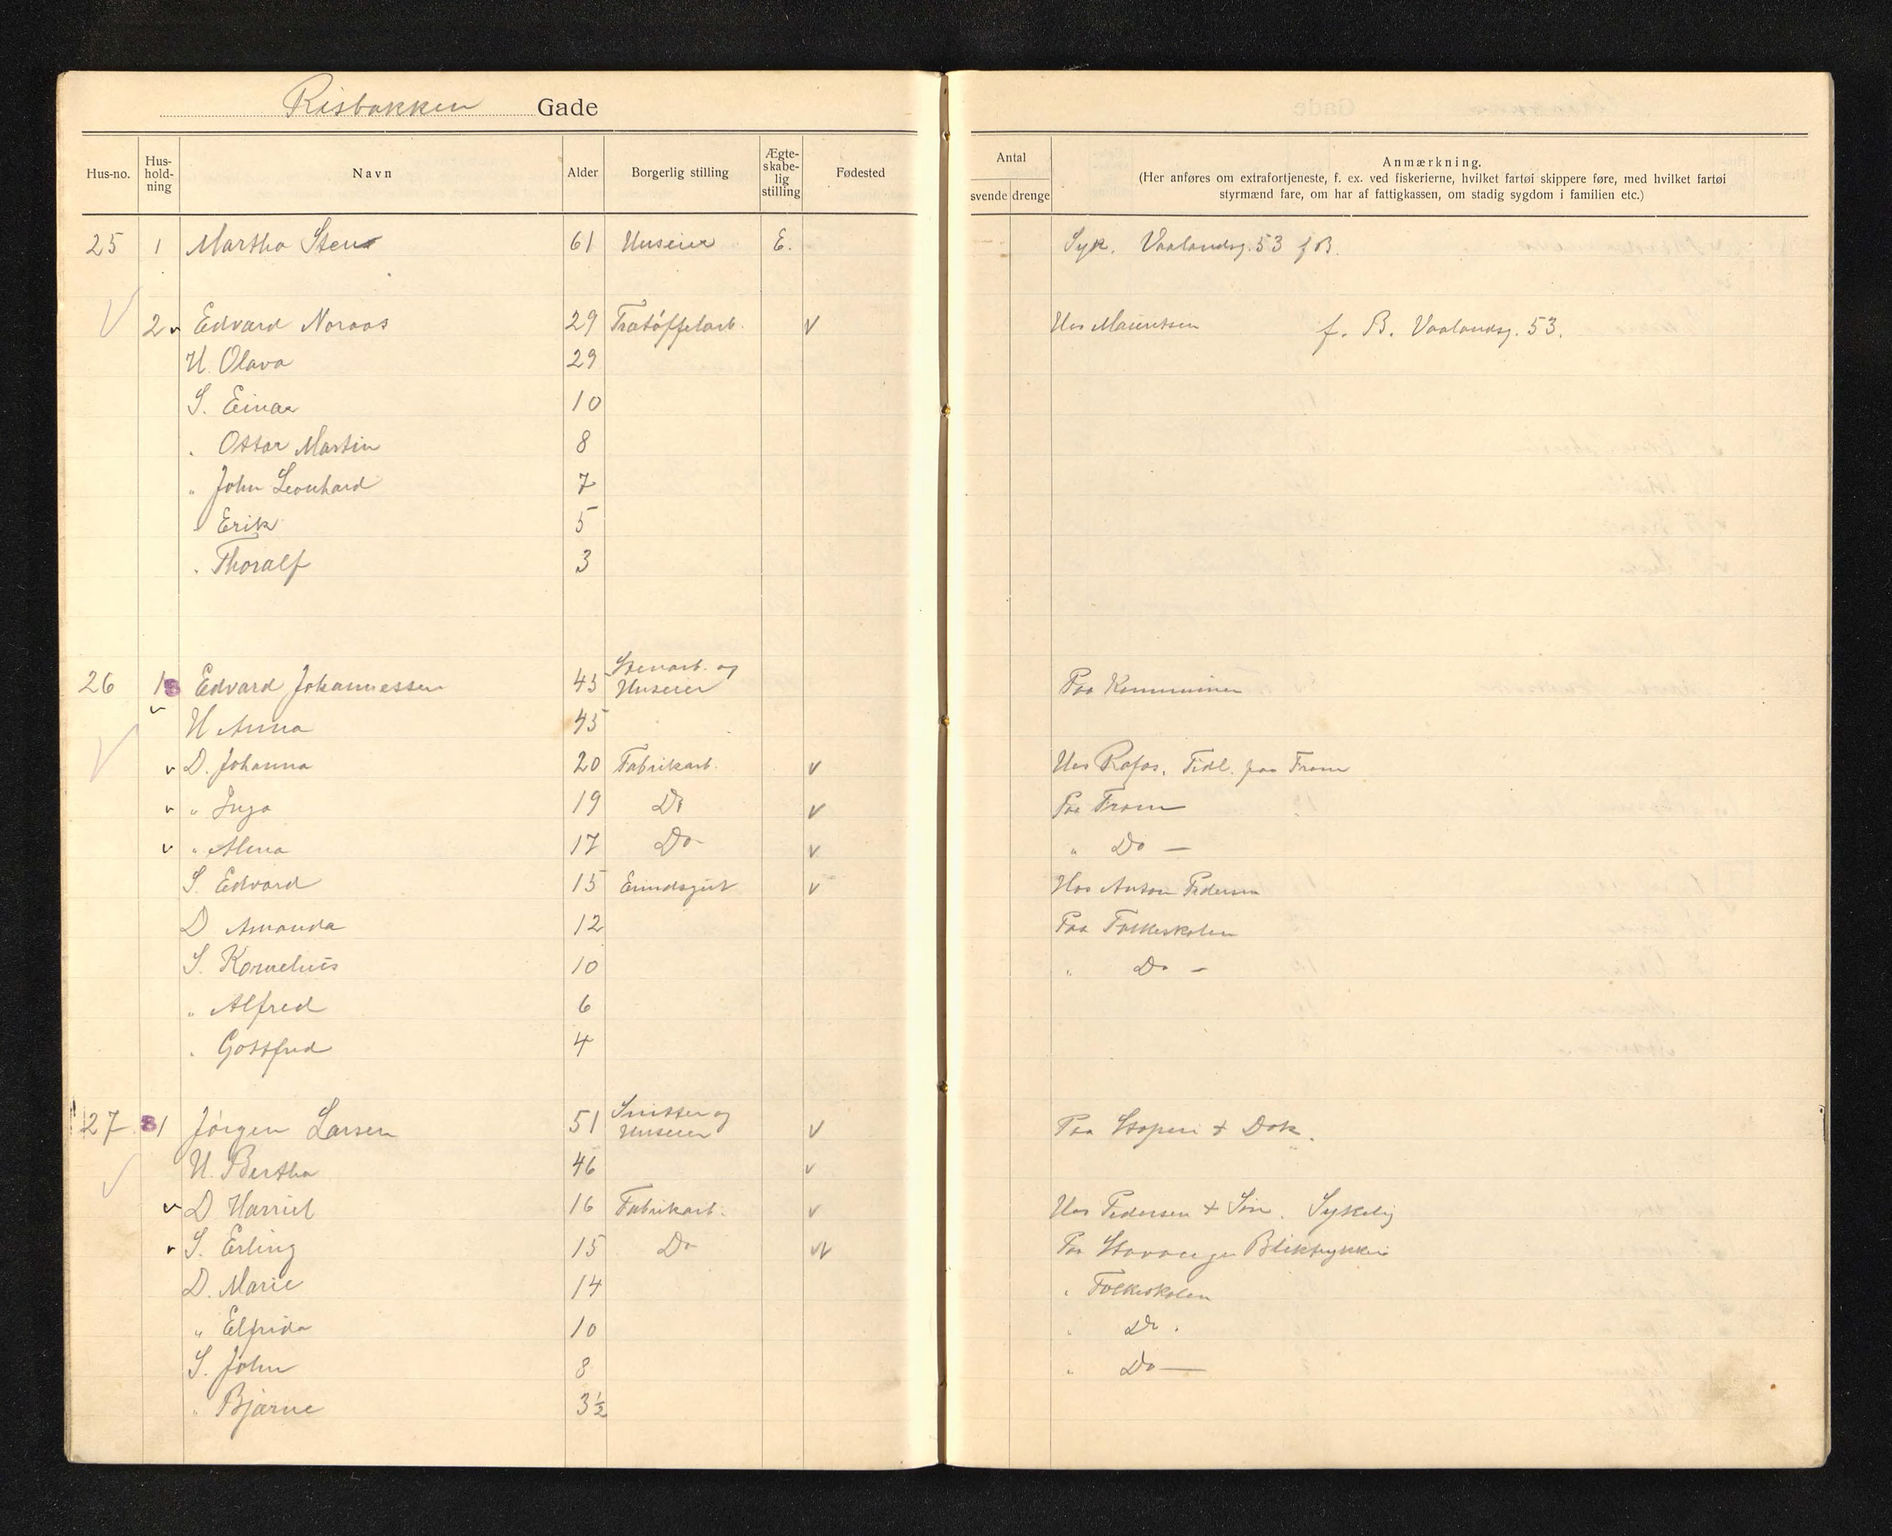 Risbakken Gade
Hus-no. Hus-hold-ning Navn Alder Borgerlig stilling Ægte-skabe-lig stilling Fødested Antal svende drenge Anmærkning.
(Her anføres om extrafortjeneste, f. ex. ved fiskerierne, hvilket fartøi skippere føre, med hvilket fartøi
styrmænd fare, om har af fattigkassen, om stadig sygdom i familien etc.)
25 1 Martha Sten 61 Huseier E. Syk. Vaalandsg. 53 f B.
2 v Edvard Noraas 29 Trætøffelarb. v Hos Mauritsen f. B. Vaalandsg. 53.
H. Olava 29
S. Einar 10
" Ottar Martin 8
" John Leonhard 7
" Erik 5
" Thoralf 3
Stenarb. og
26 1 8 Edvard Johannessen 43 Huseier Paa Kommunen
v H Anna 45
v D. Johanna 20 Fabrikarb. v Hos Rafos. Tidl. paa Fram
v " Inga 19 Do v Paa Fram
v " Alena 17 Do v " Do —
S. Edvard 15 Erindsgut v Hos Anton Pedersen
D Amanda 12 Paa Folkeskolen
S. Kornelius 10 " Do –
" Alfred 6
" Gottfred 4
Snitter og
27 8 1 Jørgen Larsen 51 Huseier v Paa Støperi + Dok.
H. Bertha 46 v
v D Harriet 16 Fabrikarb. v Hos Pedersen + Søn. Sykelig
v S. Erling 15 Do v Paa Stavanger Bliktrykkeri
D. Marie 14 " Folkeskolen
" Elfrida 10 " Do.
S. John 8 " Do —
" Bjarne 3½